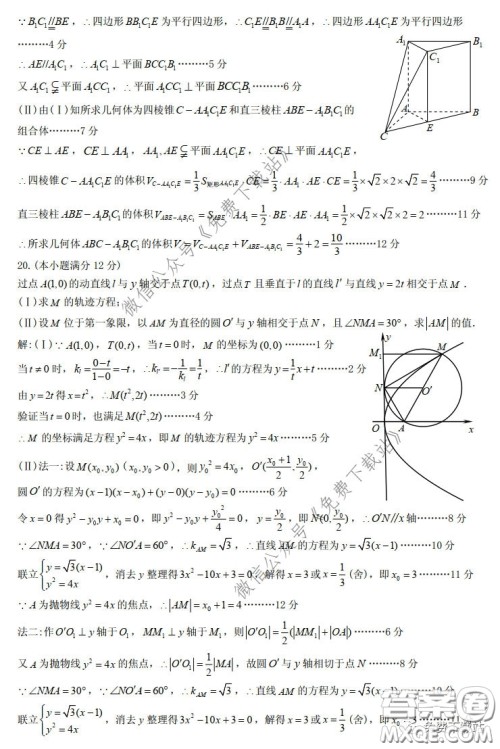 ∵B₁C₁//BE,∴四边形BB₁C₁E为平行四边形,∴C₁E//B₁B//A₁A,∴四边形AA₁C₁E为平行四边形
………4分
∴AE//A₁C₁,∴A₁C₁⊥平面BCC₁B₁………5分
又A₁C₁⊊平面A₁CC₁,∴平面A₁CC₁⊥平面BCC₁B₁………6分
(Ⅱ)由(Ⅰ)知所求几何体为四棱锥C−AA₁C₁E和直三棱柱ABE−A₁B₁C₁的
组合体………7分
∵CE⊥AE,CE⊥AA₁,AA₁,AE⊊平面AA₁C₁E,∴CE⊥平面AA₁C₁E,
∴四棱锥C−AA₁C₁E的体积V_{C−AA₁C₁E}=1/3 S_{矩形AA₁C₁E}·CE=1/3·AA₁·AE·CE=1/3×√2×√2×2=4/3………9分
直三棱柱ABE−A₁B₁C₁的体积V_{ABE−A₁B₁C₁}=S_{△ABE}·AA₁=1/2·BE·AE·AA₁=1/2×√2×√2×2=2………11分
∴所求几何体ABC−A₁B₁C₁的体积V=V_{C−AA₁C₁E}+V_{ABE−A₁B₁C₁}=4/3+2=10/3………12分
20.(本小题满分12分)
过点A(1,0)的动直线l与y轴交于点T(0,t),过点T且垂直于l的直线l′与直线y=2t相交于点M.
(Ⅰ)求M的轨迹方程;
(Ⅱ)设M位于第一象限,以AM为直径的圆O′与y轴相交于点N,且∠NMA=30°,求|AM|的值.
解:(Ⅰ)∵A(1,0),T(0,t),当t=0时,M的坐标为(0,0)………1分
当t≠0时,k_l=(0−t)/(1−0)=−t,∴k_{l′}=−1/k_l=1/t,∴l′的方程为y=1/t x+t………2分
由y=2t得x=t²,∴M(t²,2t)………3分
验证当t=0时,也满足M(t²,2t)………4分
∴M的坐标满足方程y²=4x,即M的轨迹方程为y²=4x………5分
(Ⅱ)法一:设M(x₀,y₀)(x₀,y₀>0),则y₀²=4x₀,O′((x₀+1)/2,y₀/2),
圆O′的方程为(x−1)(x−x₀)+(y−0)(y−y₀)=0………6分
令x=0得y²−y₀y+x₀=0,即y²−y₀y+y₀²/4=0,y=y₀/2,即N(0,y₀/2),∴O′N//x轴………8分
∵∠NMA=30°,∵∠NO′A=60°,∴k_{AM}=√3,∴直线AM的方程为y=√3(x−1)………10分
联立{y=√3(x−1) y²=4x,消去y整理得3x²−10x+3=0,解得x=3或x=1/3(舍),即x₀=3………11分
∵A为抛物线y²=4x的焦点,∴|AM|=x₀+1=4………12分
法二:作O′O₁⊥y轴于O₁,MM₁⊥y轴于M₁,则|O′O₁|=1/2(|MM₁|+|OA|)………6分
又A为抛物线y²=4x的焦点,∴|O′O₁|=1/2|MA|,故圆O′与y轴相切于点N………8分
∵∠NMA=30°,∵∠NO′A=60°,∴k_{AM}=√3,∴直线AM的方程为y=√3(x−1)………10分
联立{y=√3(x−1) y²=4x,消去y整理得3x²−10x+3=0,解得x=3或x=1/3(舍),即x₀=3
A₁
B₁
C₁
A
B
C
E
y
M₁
M
N
O′
O
A
x
微信公众号《免费下载站》
微信公众号《免费下载站》